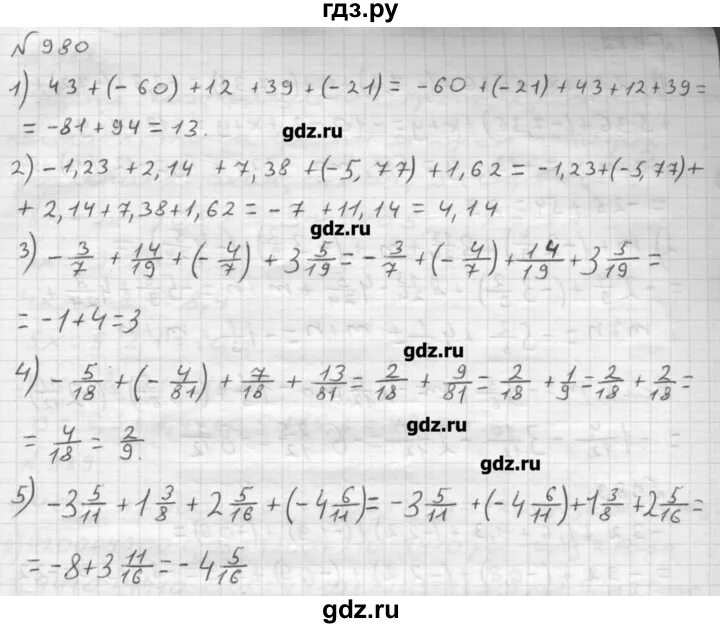 гдз.ру
№ 980
1) 43 + (- 60) + 12 + 39 + (- 21) = - 60 + (- 21) + 43 + 12 + 39 =
= - 81 + 94 = 13.
gdz.ru
2) - 1,23 + 2,14 + 7,38 + (- 5,77) + 1,62 = - 1,23 + (- 5,77) +
+ 2,14 + 7,38 + 1,62 = - 7 + 11,14 = 4,14
gdz.ru
3) - 3/7 + 14/19 + (- 4/7) + 3 5/19 = - 3/7 + (- 4/7) + 14/19 + 3 5/19 =
= - 1 + 4 = 3
gdz.ru
4) - 5/18 + (- 4/81) + 7/18 + 13/81 = 2/18 + 9/81 = 2/18 + 1/9 = 2/18 + 2/18 =
gdz.ru
= 4/18 = 2/9.
gdz.ru
5) - 3 5/11 + 1 3/8 + 2 5/16 + (- 4 6/11) = - 3 5/11 + (- 4 6/11) + 1 3/8 + 2 5/16 =
= - 8 + 3 11/16 = - 4 5/16
gdz.ru